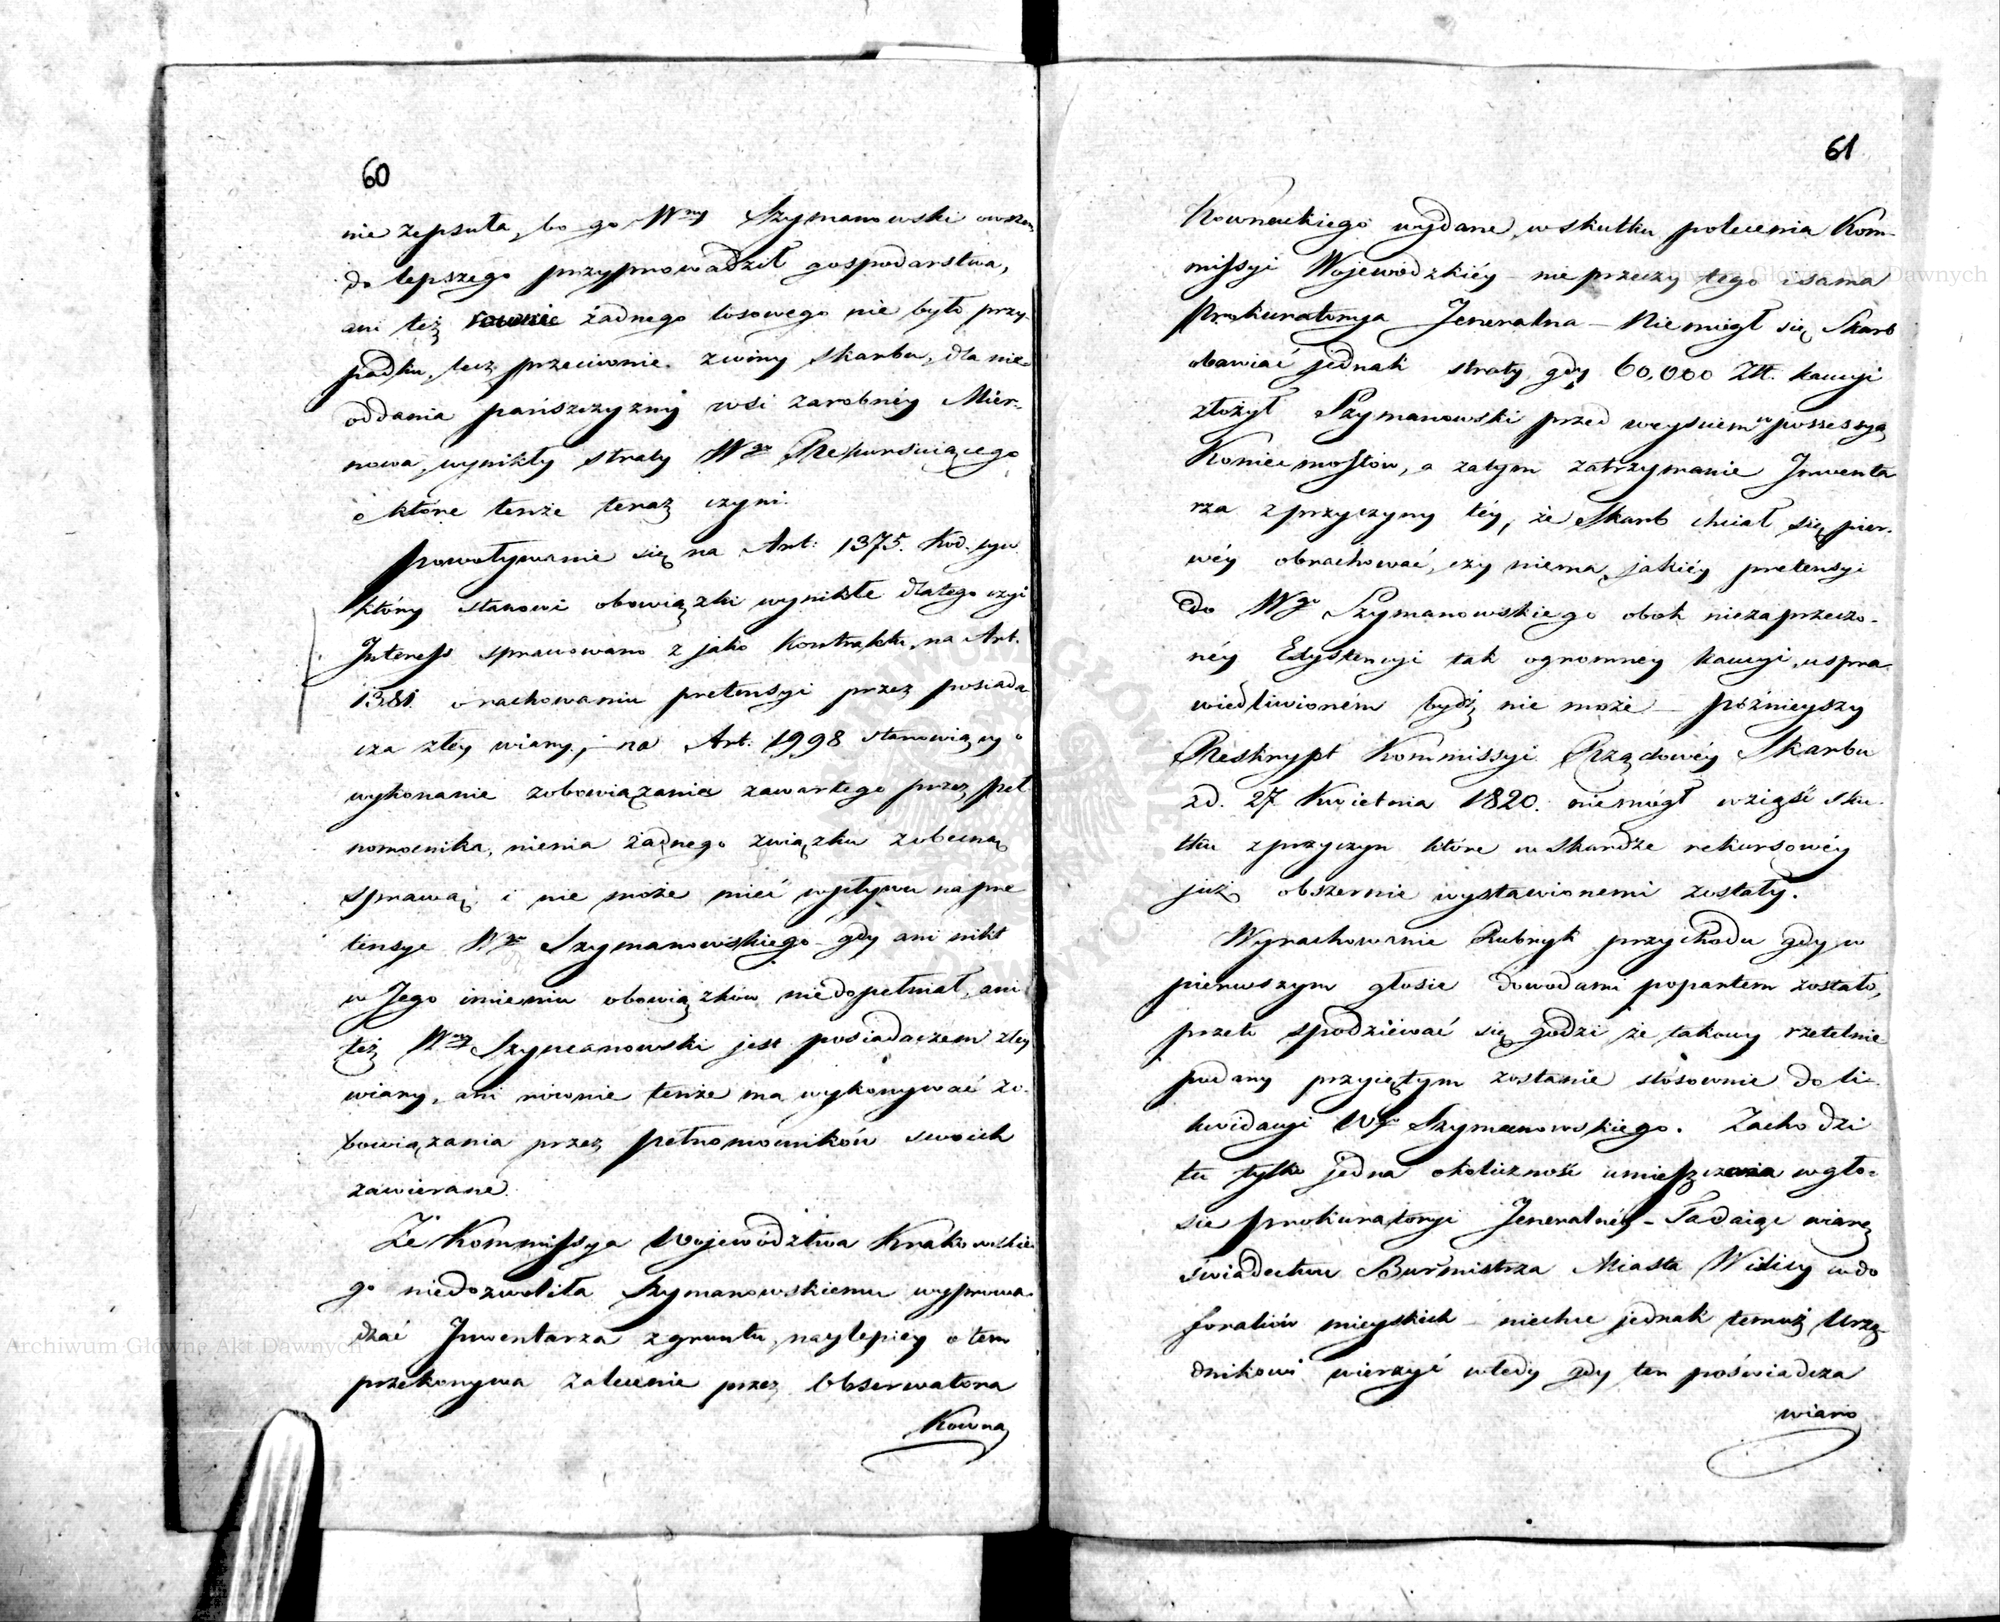 60
nie zepsuła, bo go Wny Szymanowski owszem
do lepszego przyprowadził gospodarstwa,
ani też żadnego losowego nie było przy-
padku, lecz przeciwnie z winy Skarbu, dla nie-
oddania pańszczyzny wsi zarobnéy Mier-
nowa, wynikły straty Wgo Rekursuiącego
o które tenże teraz czyni.
Powoływanie się na Art: 1375. Kod. cyw.
który stanowi obowiązki wynikłe dlatego czyi
Interess sprawowano z jako Kontraktu, na Art.
1381. o rachowaniu pretensyi przez posiada
cza złéy wiary, na Art: 1998 stanowiący o
wykonanie zobowiązania zawartego przez peł
nomocnika, niema żadnego związku z obecną
sprawą i nie może mieć wpływu na pre
tensye Wgo Szymanowskiego gdy ani nikt
w Jego imieniu obowiązków niedopełniał, ani
też Wny Szymanowski jest posiadaczem złey
wiary, ani rownie tenże ma wykonywać zo-
bowiązania przez pełnomocników swoich
zawierane
Że Kommissya Województwa Krakowskie
go niedozwoliła Szymanowskiemu wyprowa-
dzać Inwentarza z gruntu, naylepiey o tem
przekonywa zalecenie przez Obserwatora
Kowna
61
Kownackiego wydane, w skutku polecenia Kom-
missyi Wojewódzkiéy – nieprzeczy tego i sama
Prokuratorya Jeneralna – Niemógł się Skarb
obawiać jednak straty gdy 60,000 Złł. kaucyi
złożył Szymanowski przed weyściem w possessyą
Koniecmostów, a zatym zatrzymanie Inwenta
rza z przyczyny téy, że Skarb chciał się pier-
wéy obrachować, czy niema jakiéy pretensyi
do Wgo Szymanowskiego obok niezaprzeczo-
néy Edystencyi tak ogromney kaucyi, uspra-
wiedliwioném bydź nie może – późnieyszy
Reskrypt Kommissyi Rządowéy Skarbu
z d. 27 Kwietnia 1820. niemógł wziąść sku-
tku z przyczyn które w skardze rekursowéy
już obszernie wystawionemi zostały.
Wyrachowanie Rubryk przychodu gdy w
pierwszym głosie dowodami popartem zostało,
przeto spodziéwać się godzi że takowy rzetelnie
podany przyiętym zostanie stósownie do li-
kwidacyi Wgo Szymanowskiego. Zachodzi
tu tylko jedna okoliczność umieszczenia w gło-
sie Prokuratoryi Jeneralnéy – Ta daiąc wiarę
świadectwu Burmistrza Miasta Wiślicy w do
foraliów mieyskich – niechce jednak temuż Urzę-
dnikowi wierzyć wtedy gdy ten poświadcza
wiaro
Archiwum Główne Akt Dawnych
Archiwum Główne Akt Dawnych